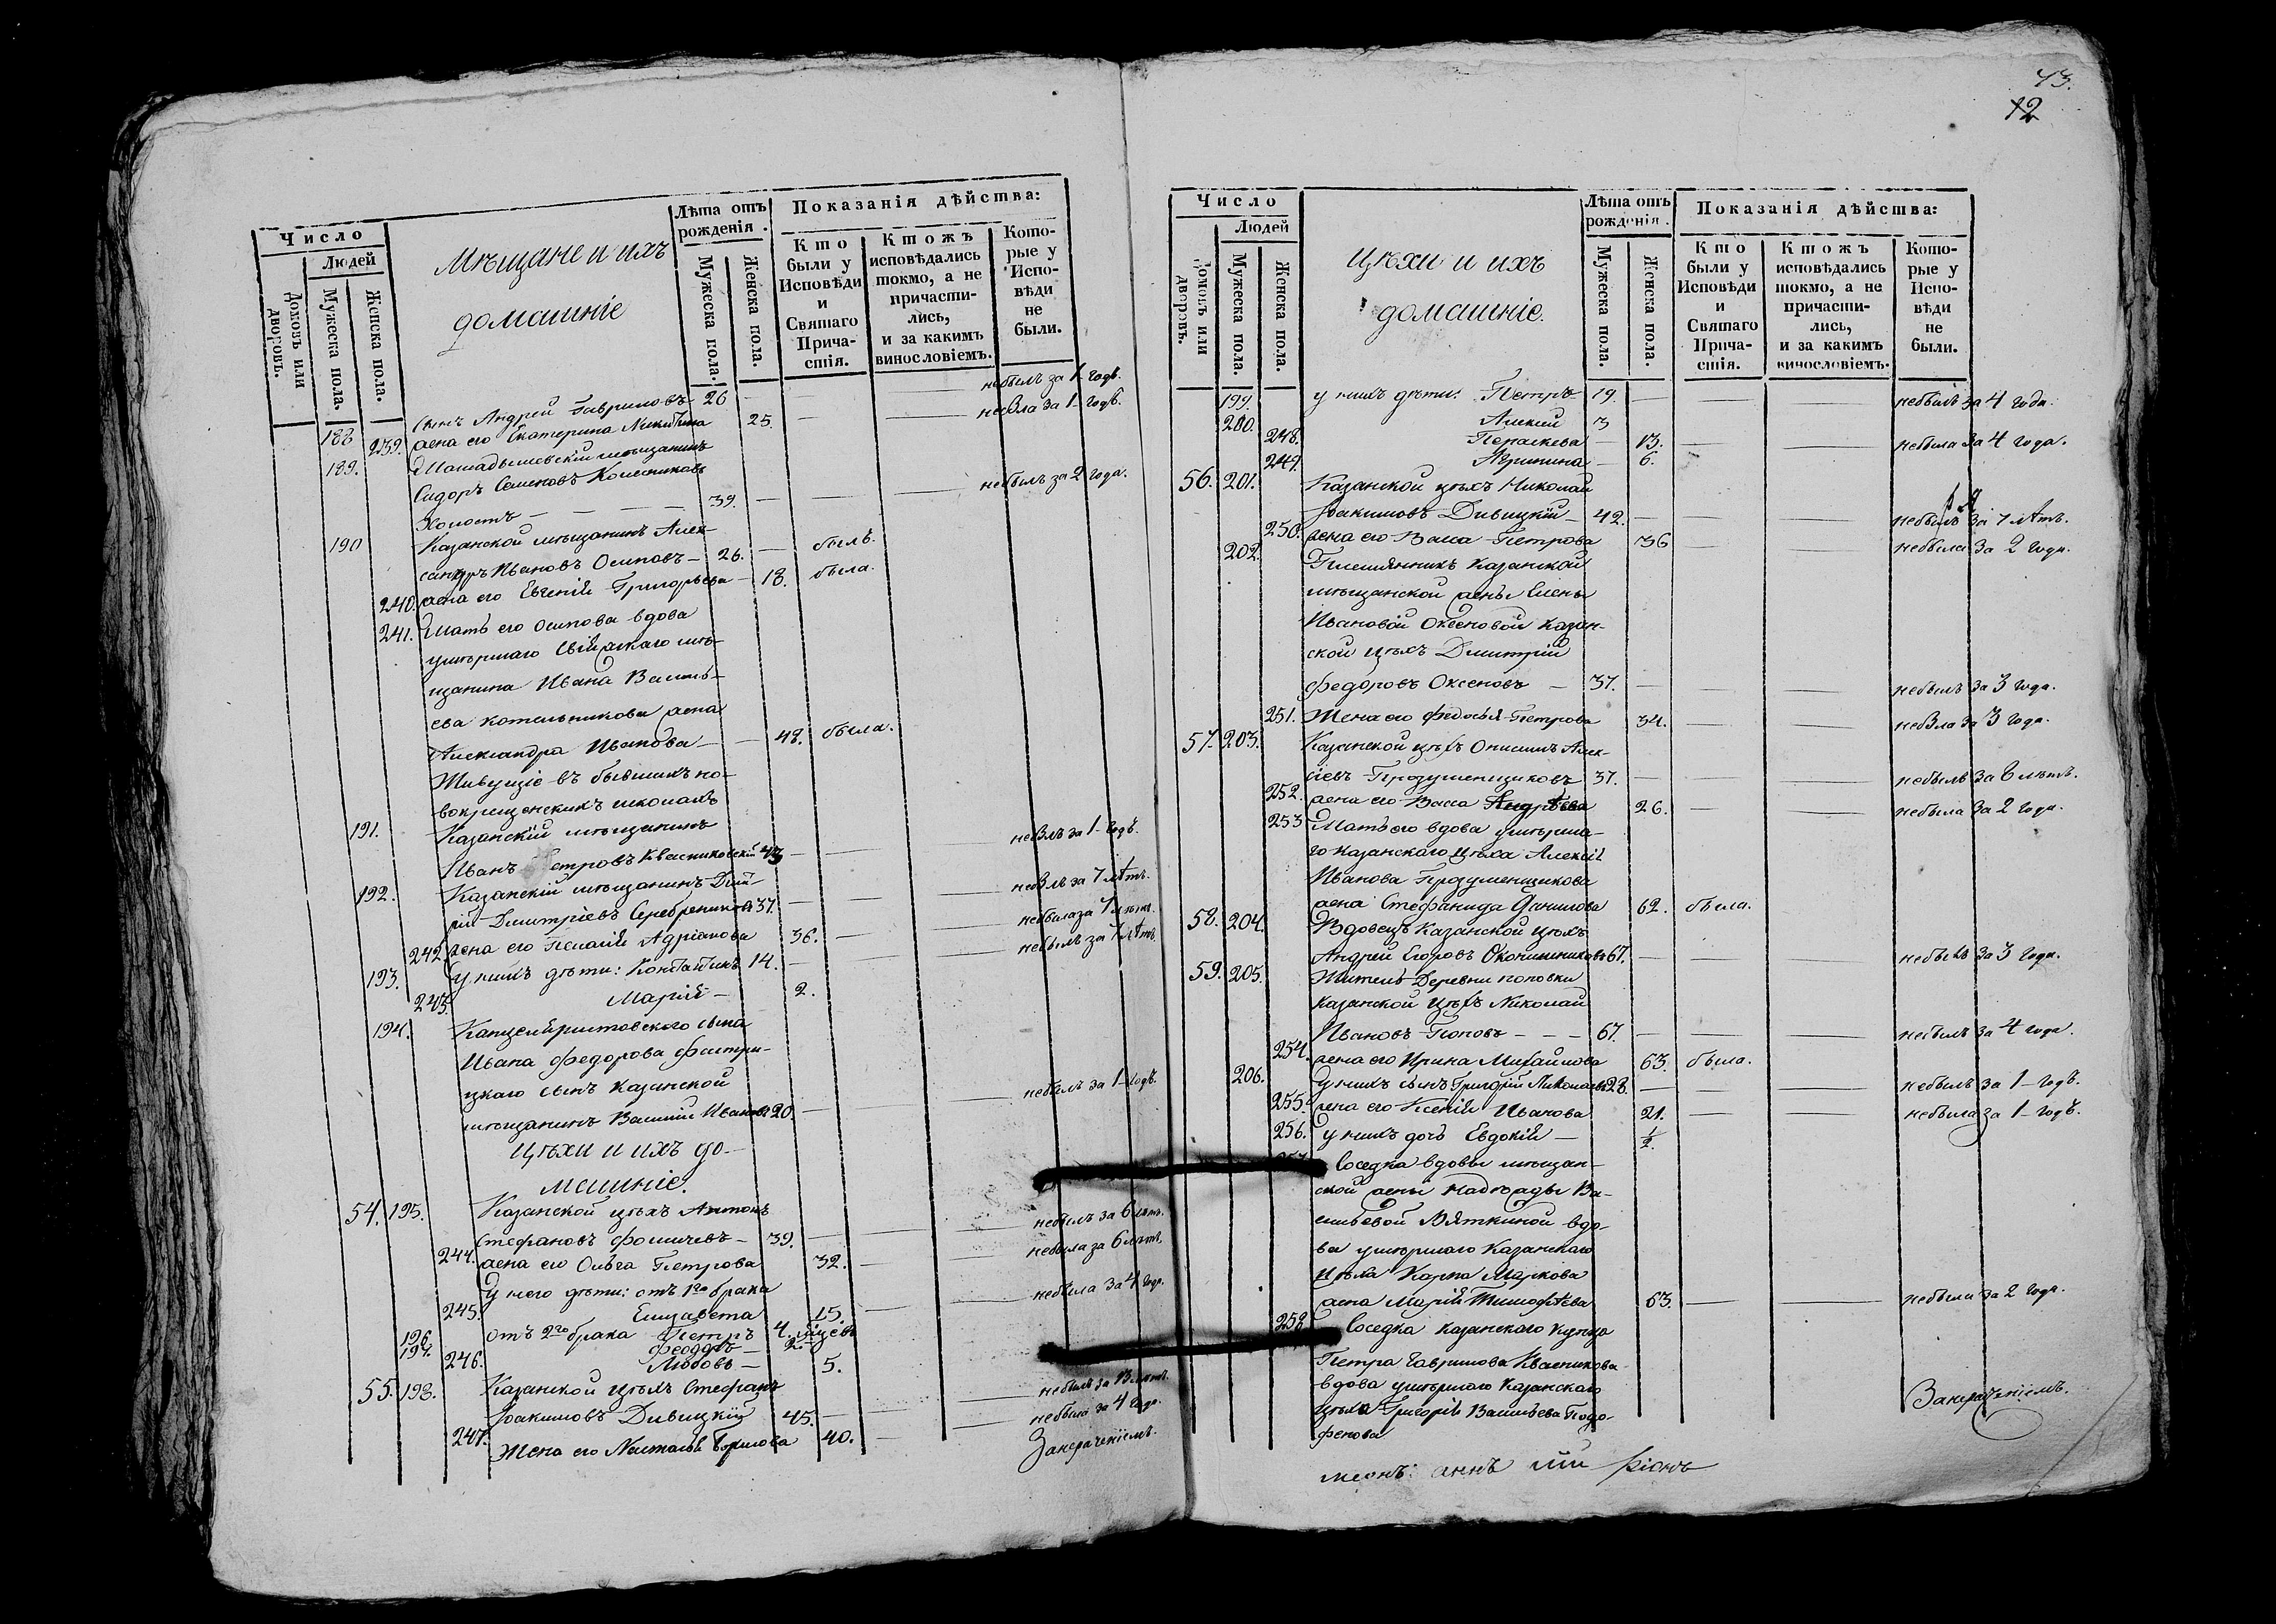 Число
Людей
Домовъ или дворовъ.
Мужеска пола.
Женска пола.
Мѣщане и ихъ
домашніе
Лѣта отъ рожденія.
Мужеска пола.
Женска пола.
Показанія дѣйства:
Кто были у Исповѣди и Святаго Причастія.
Ктожъ исповѣдались токмо, а не причастились, и за какимъ винословіемъ.
Которые у Исповѣди не были.
188 сынъ Андрей Гавриловъ 26 — небылъ за 1 годъ.
239. жена его Екатерина Никитина 25. — небыла за 1 годъ.
189. мѣщанинъ
Сидоръ Семеновъ Колесниковъ
Холостъ — 39. — небылъ за 2 года.
190 Казанской мѣщанинъ Алек-
сандръ Ивановъ Осиповъ — 26. — былъ.
240. жена его Евгенія Григорьева — 18. была.
241. Мать его Осипова вдова
умершаго Свіяжскаго мѣ-
щанина Ивана Василь-
ева Котельникова жена
Александра Иванова — 48. была.
Живущіе въ бывшихъ но-
вокрещенскихъ школахъ
191. Казанскій мѣщанинъ
Иванъ Петровъ Квасниковскій 43 — небылъ за 1 годъ.
192. Казанскій мѣщанинъ
Дмитріевъ Серебрениковъ 37. — небылъ за 7 лѣтъ.
242. жена его Пелагія Адріанова 36. — небыла за 7 лѣтъ.
193. у нихъ дѣти: Константинъ 14. — небылъ за 7 лѣтъ.
243. Марія — 2.
194. Канцеляристовскаго сына
Ивана Федорова
цкаго сынъ Казанской
мѣщанинъ Василій Ивановъ 20. — небылъ за 1 годъ.
Цѣхи и ихъ до-
машніе.
54. 195. Казанской цѣхъ Антонъ
Стефановъ Фомичевъ — 39. — небылъ за 6 лѣтъ.
244. жена его Ольга Петрова 32. — небыла за 6 лѣтъ.
У него дѣти: отъ 1го брака
245. Елизавета 15. — небыла за 4 года.
196. отъ 2го брака Петръ 4.
197. Феодоръ —
246. Любовь — 5.
55. 198. Казанской цѣхъ Стефанъ
Іоакимовъ Дивицкій 45. —
247. Жена его Наталія 40. — небыла за 4 года.
43.
12
Число
Людей
Домовъ или дворовъ.
Мужеска пола.
Женска пола.
Цѣхи и ихъ
домашніе.
Лѣта отъ рожденія.
Мужеска пола.
Женска пола.
Показанія дѣйства:
Кто были у Исповѣди и Святаго Причастія.
Ктожъ исповѣдались токмо, а не причастились, и за какимъ винословіемъ.
Которые у Исповѣди не были.
199. у нихъ дѣти: Петръ 19. — небылъ за 4 года.
200. Алексій 3
248. Параскева — 13. — небыла за 4 года.
249. Агрипина — 6.
56. 201. Казанской цѣхъ Николай
Іоакимовъ Дивицкій — 42. — небылъ за 7 лѣтъ.
250. жена его Васса Петрова 36 — небыла за 2 года.
202. Племянникъ Казанской
мѣщанской жены Елены
Ивановой Оксеновой Казан-
ской цѣхъ Дмитрій
Федоровъ Оксеновъ — 37. — небылъ за 3 года.
251. Жена его Федосья Петрова 34. — небыла за 3 года.
57. 203. Казанской цѣхъ Онисимъ Алек-
сіевъ Прозуменщиковъ 37. — небылъ за 8 лѣтъ.
252. жена его Васса Андрѣева 26. — небыла за 2 года.
253 Мать его вдова умерша-
го Казанскаго цѣха Алексія
Иванова Прозуменщикова
жена Стефанида Данилова 62. была.
58. 204. Вдовецъ Казанской цѣхъ
Андрей Егоровъ Оконишниковъ 67. — небылъ за 3 года.
59. 205. Житель Деревни Поповки
Казанской цѣхъ Николай
Ивановъ Поповъ — 67. — небылъ за 4 года.
254. жена его Ирина Михайлова 63. была.
206. у нихъ сынъ Григорій Николаевъ 28. — небылъ за 1 годъ.
255. жена его Ксенія Иванова 21. — небыла за 1 годъ.
256. у нихъ дочь Евдокія — 1/2.
Соседка вдовы мѣщан-
ской жены Надежды Ва-
сильевой Вяткиной вдо-
ва умершаго Казанскаго
цѣха Карпа Маркова
жена Марія Тимофѣева 63. — небыла за 2 года.
258. Соседка Казанскаго купца
Петра Гаврилова Квасникова
вдова умершаго Казанскаго
цѣха Григорія Васильева